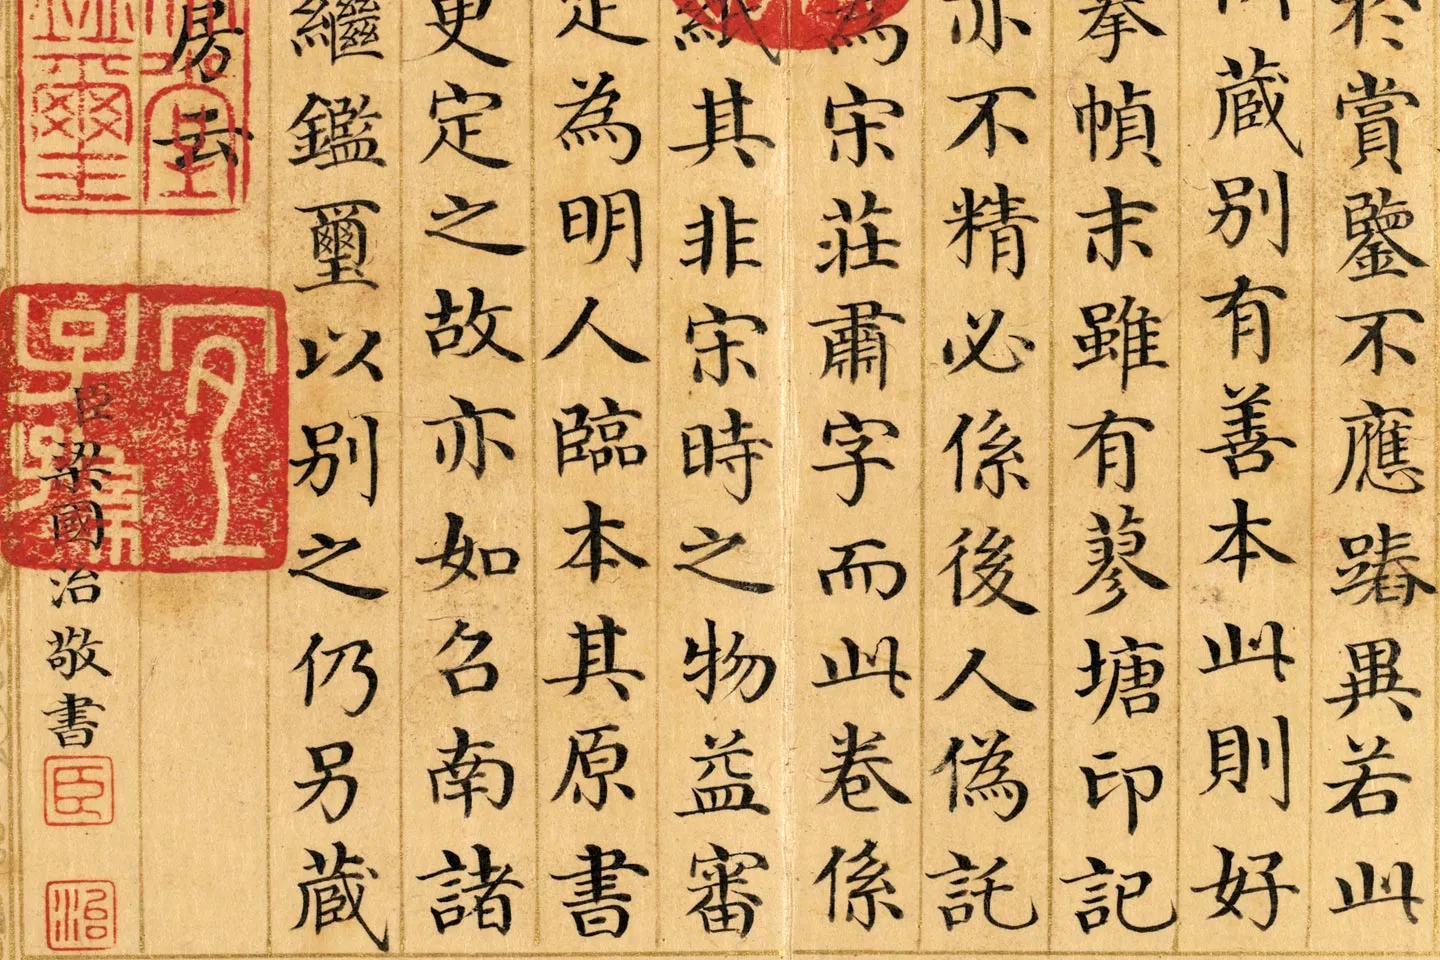 於賞鑒不應踳異若此
所藏别有善本此則好
拳幀末雖有蓼塘印記
亦不精必係後人偽託
為宋莊肅字而此卷係
紙其非宋時之物益審
定為明人臨本其原書
更定之故亦如名南諸
繼鑑璽以别之仍另藏
房云
臣梁國治敬書
臣
治